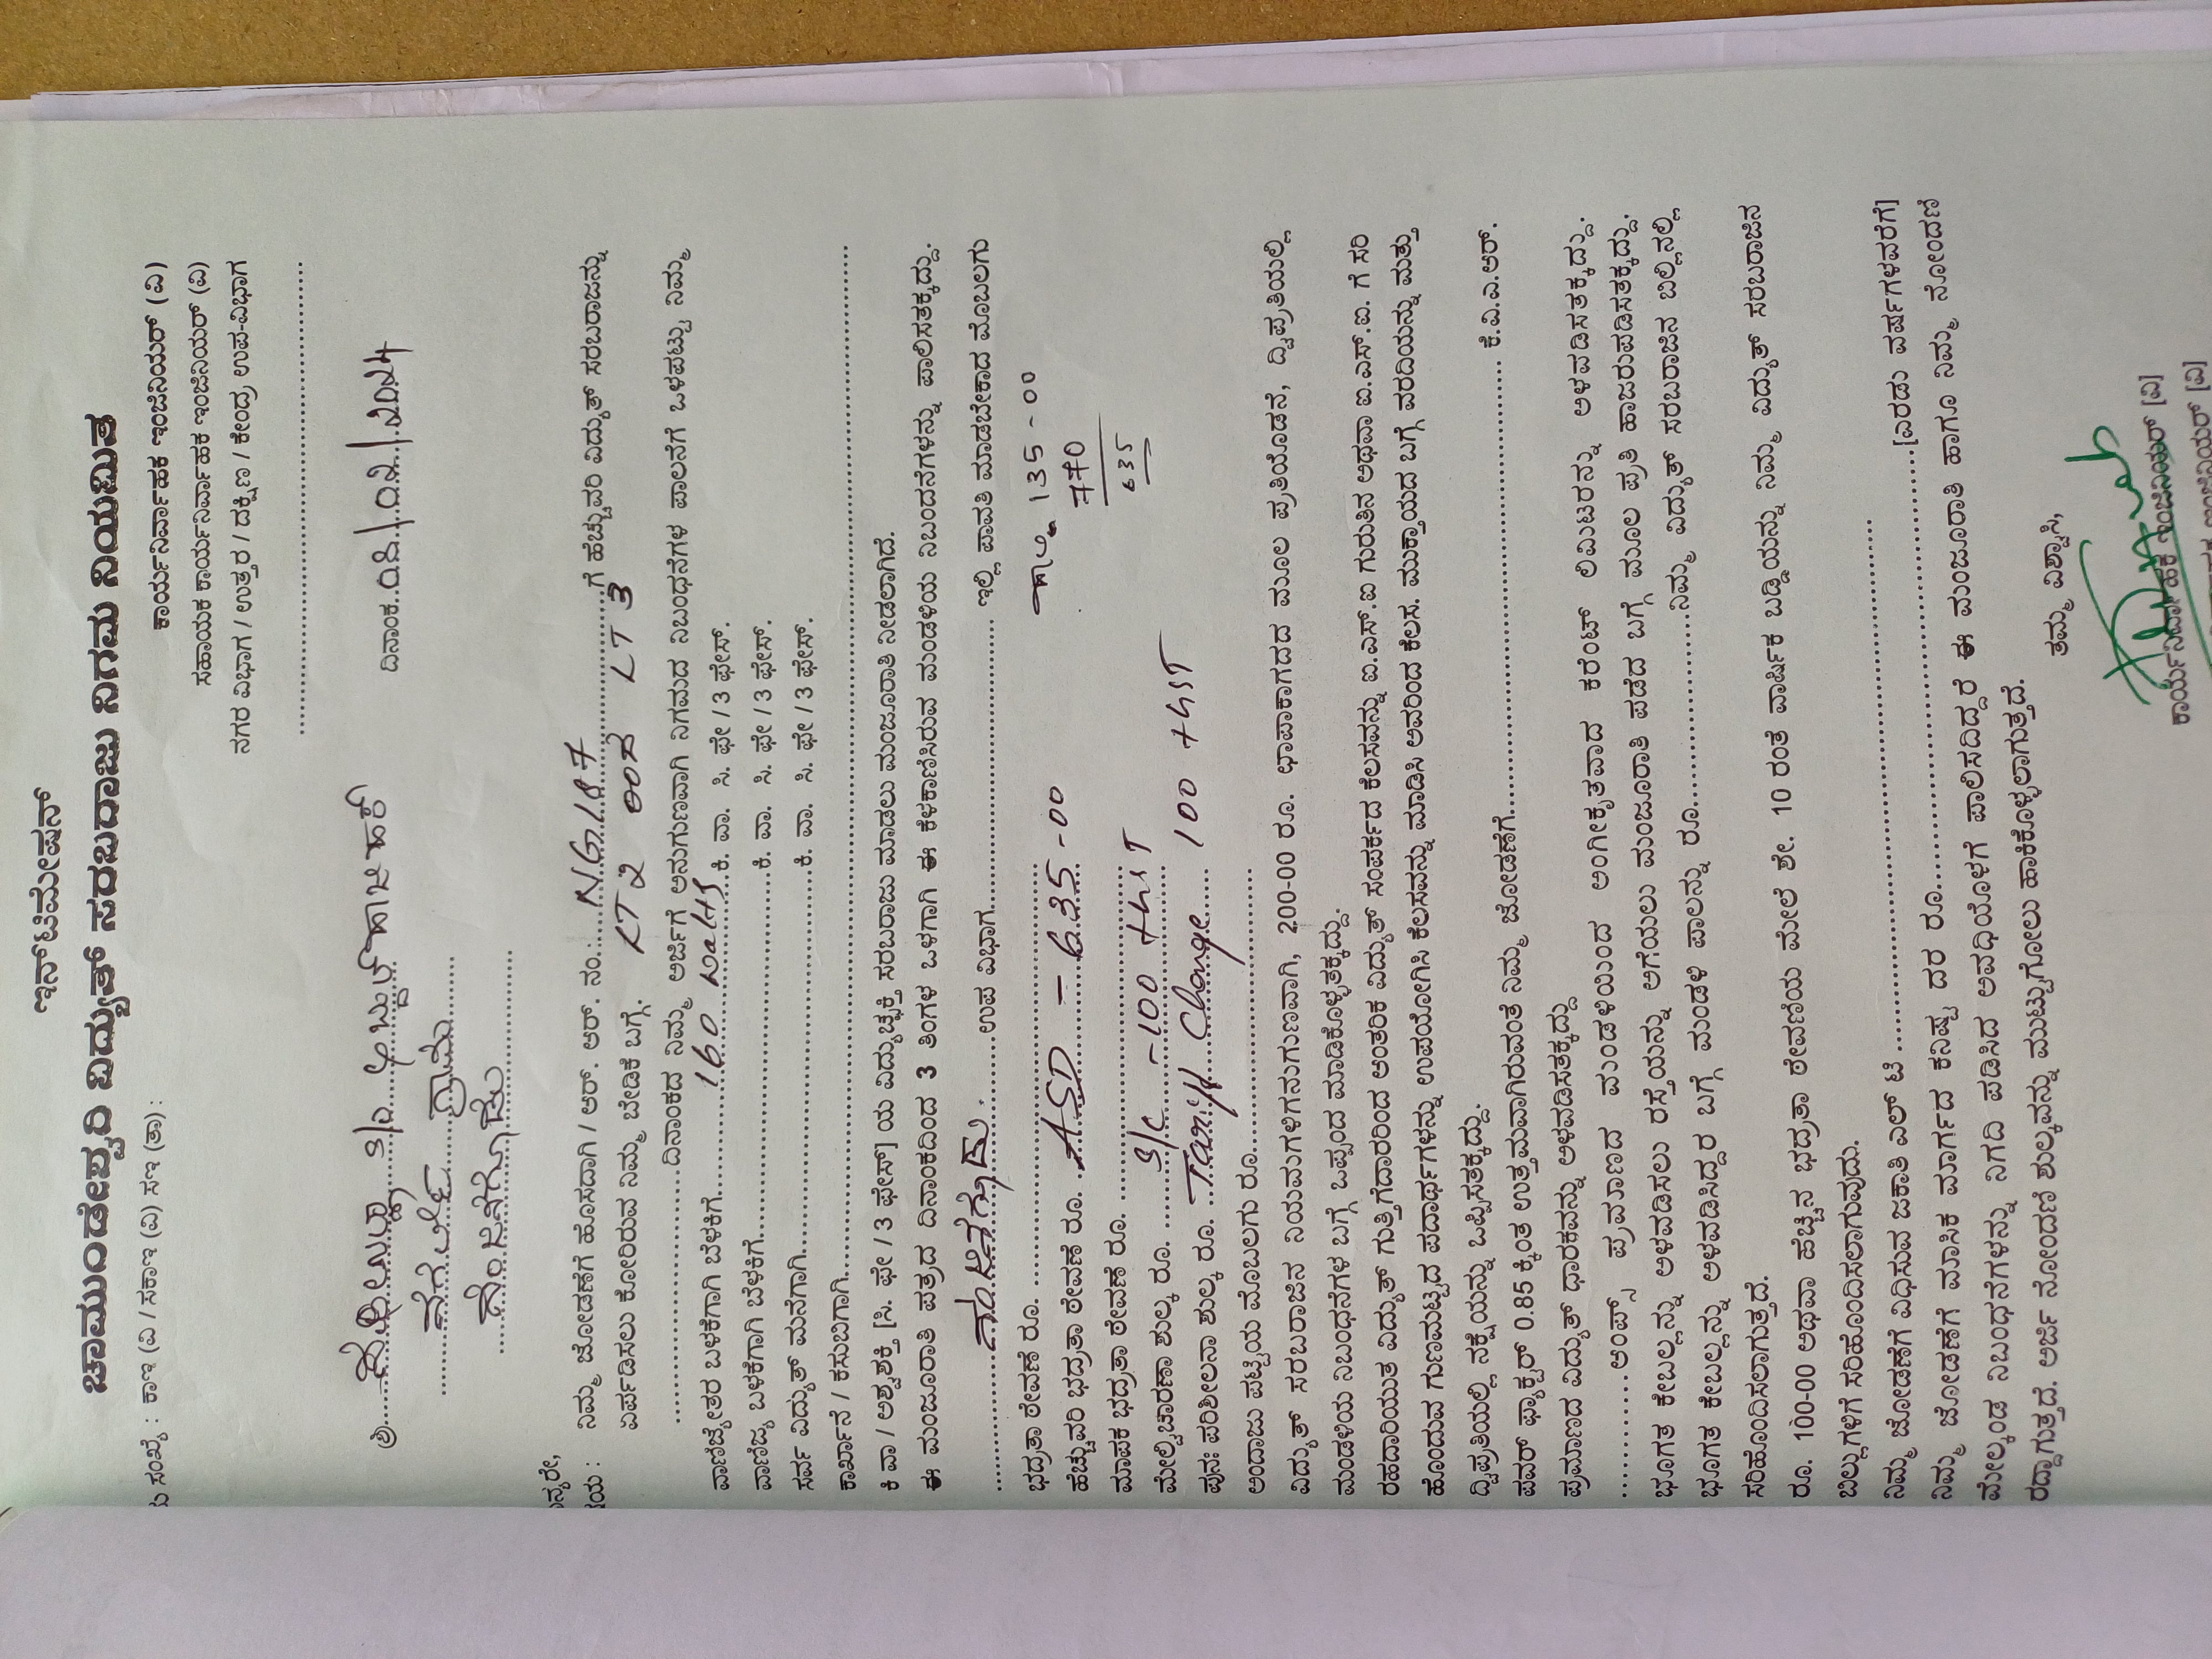 ಇನ್‌ಟಿಮೇಷನ್
ಚಾಮುಂಡೇಶ್ವರಿ ವಿದ್ಯುತ್ ಸರಬರಾಜು ನಿಗಮ ನಿಯಮಿತ
ಸಂಖ್ಯೆ : ಕಾಇ (ವಿ / ಸಕಾಇ (ವಿ) ಸಇ (ತಾ) :
ಕಾರ್ಯನಿರ್ವಾಹಕ ಇಂಜಿನಿಯರ್ (ವಿ)
ಸಹಾಯಕ ಕಾರ್ಯನಿರ್ವಾಹಕ ಇಂಜಿನಿಯರ್ (ವಿ)
ನಗರ ವಿಭಾಗ / ಉತ್ತರ / ದಕ್ಷಿಣ / ಕೇಂದ್ರ ಉಪ-ವಿಭಾಗ
ಶ್ರೀ
ದಿನಾಂಕ..08/02/2024
ಗ್ರಾಮ
ನಿಮ್ಮ ಜೋಡಣೆಗೆ ಹೊಸದಾಗಿ / ಆರ್. ಆರ್. ನಂ: NG187 ಗೆ ಹೆಚ್ಚುವರಿ ವಿದ್ಯುತ್ ಸರಬರಾಜನ್ನು
ಏರ್ಪಡಿಸಲು ಕೋರಿರುವ ನಿಮ್ಮ ಬೇಡಿಕೆ ಬಗ್ಗೆ. LT 2 ಇಂದ LT 3
ದಿನಾಂಕದ ನಿಮ್ಮ ಅರ್ಜಿಗೆ ಅನುಗುಣವಾಗಿ ನಿಗಮದ ನಿಬಂಧನೆಗಳ ಪಾಲನೆಗೆ ಒಳಪಟ್ಟು ನಿಮ್ಮ
ವಾಣಿಜ್ಯೇತರ ಬಳಕೆಗಾಗಿ ಬೆಳಕಿಗೆ 160 watts ಕಿ. ವಾ. ಸಿ. ಫೇ / 3 ಫೇಸ್.
ವಾಣಿಜ್ಯ ಬಳಕೆಗಾಗಿ ಬೆಳಕಿಗೆ ಕಿ. ವಾ. ಸಿ. ಫೇ / 3 ಫೇಸ್.
ಸರ್ವ ವಿದ್ಯುತ್ ಮನೆಗಾಗಿ ಕಿ. ವಾ. ಸಿ. ಫೇ / 3 ಫೇಸ್.
ಕಾರ್ಖಾನೆ / ಕಸುಬಿಗಾಗಿ
ಕಿ ವಾ / ಅಶ್ವಶಕ್ತಿ [ಸಿ. ಫೇ / 3 ಫೇಸ್] ಯ ವಿದ್ಯುಚ್ಛಕ್ತಿ ಸರಬರಾಜು ಮಾಡಲು ಮಂಜೂರಾತಿ ನೀಡಲಾಗಿದೆ.
ಈ ಮಂಜೂರಾತಿ ಪತ್ರದ ದಿನಾಂಕದಿಂದ 3 ತಿಂಗಳ ಒಳಗಾಗಿ ಈ ಕೆಳಕಾಣಿಸಿರುವ ಮಂಡಳಿಯ ನಿಬಂದನೆಗಳನ್ನು ಪಾಲಿಸತಕ್ಕದ್ದು.
ನಂಜನಗೂಡು. ಉಪ ವಿಭಾಗ ಇಲ್ಲಿ ಪಾವತಿ ಮಾಡಬೇಕಾದ ಮೊಬಲಗು
ಭದ್ರತಾ ಠೇವಣಿ ರೂ. 135-00
ಹೆಚ್ಚುವರಿ ಭದ್ರತಾ ಠೇವಣಿ ರೂ. ASD - 635-00 770
ಮಾಪಕ ಭದ್ರತಾ ಠೇವಣಿ ರೂ. 635
ಮೇಲ್ವಿಚಾರಣಾ ಶುಲ್ಕ ರೂ. S/C -100 + hsT
ಪುನಃ ಪರಿಶೀಲನಾ ಶುಲ್ಕ ರೂ. Tariff Change 100 + hsT
ಅಂದಾಜು ಪಟ್ಟಿಯ ಮೊಬಲಗು ರೂ.
ವಿದ್ಯುತ್ ಸರಬರಾಜಿನ ನಿಯಮಗಳಿಗನುಗುಣವಾಗಿ, 200-00 ರೂ. ಛಾಪಾಕಾಗದದ ಮೂಲ ಪ್ರತಿಯೊಡನೆ, ದ್ವಿಪ್ರತಿಯಲ್ಲಿ
ಮಂಡಳಿಯ ನಿಬಂಧನೆಗಳ ಬಗ್ಗೆ ಒಪ್ಪಂದ ಮಾಡಿಕೊಳ್ಳತಕ್ಕದ್ದು.
ರಹದಾರಿಯುತ ವಿದ್ಯುತ್ ಗುತ್ತಿಗೆದಾರರಿಂದ ಆಂತರಿಕ ವಿದ್ಯುತ್ ಸಂಪರ್ಕದ ಕೆಲಸವನ್ನು ಐ.ಎಸ್.ಐ ಗುರುತಿನ ಅಥವಾ ಐ.ಎಸ್.ಐ. ಗೆ ಸರಿ
ಹೊಂದುವ ಗುಣಮಟ್ಟದ ಪದಾರ್ಥಗಳನ್ನು ಉಪಯೋಗಿಸಿ ಕೆಲಸವನ್ನು ಮಾಡಿಸಿ ಅವರಿಂದ ಕೆಲಸ. ಮುಕ್ತಾಯದ ಬಗ್ಗೆ ವರದಿಯನ್ನು ಮತ್ತು
ದ್ವಿಪ್ರತಿಯಲ್ಲಿ ನಕ್ಷೆಯನ್ನು ಒಪ್ಪಿಸತಕ್ಕದ್ದು.
ಪವರ್ ಫ್ಯಾಕ್ಟರ್ 0.85 ಕ್ಕಿಂತ ಉತ್ತಮವಾಗಿರುವಂತೆ ನಿಮ್ಮ ಜೋಡಣೆಗೆ ಕೆ.ವಿ.ಎ.ಆರ್.
ಪ್ರಮಾಣದ ವಿದ್ಯುತ್ ಧಾರಕವನ್ನು ಅಳವಡಿಸತಕ್ಕದ್ದು
ಆಂಪ್ಸ್ ಪ್ರಮಾಣದ ಮಂಡಳಿಯಿಂದ ಅಂಗೀಕೃತವಾದ ಕರೆಂಟ್ ಲಿಮಿಟರನ್ನು ಅಳವಡಿಸತಕ್ಕದ್ದು.
ಭೂಗತ ಕೇಬಲ್ಲನ್ನು ಅಳವಡಿಸಲು ರಸ್ತೆಯನ್ನು ಅಗೆಯಲು ಮಂಜೂರಾತಿ ಪಡೆದ ಬಗ್ಗೆ ಮೂಲ ಪ್ರತಿ ಹಾಜರುಪಡಿಸತಕ್ಕದ್ದು.
ಭೂಗತ ಕೇಬಲ್ಲನ್ನು ಅಳವಡಿಸಿದ್ದರ ಬಗ್ಗೆ ಮಂಡಳಿ ಪಾಲನ್ನು ರೂ. ನಿಮ್ಮ ವಿದ್ಯುತ್ ಸರಬರಾಜಿನ ಬಿಲ್ಲಿನಲ್ಲಿ
ಸರಿಹೊಂದಿಸಲಾಗುತ್ತದೆ.
ರೂ. 100-00 ಅಥವಾ ಹೆಚ್ಚಿನ ಭದ್ರತಾ ಠೇವಣಿಯ ಮೇಲೆ ಶೇ. 10 ರಂತೆ ವಾರ್ಷಿಕ ಬಡ್ಡಿಯನ್ನು ನಿಮ್ಮ ವಿದ್ಯುತ್ ಸರಬರಾಜಿನ
ಬಿಲ್ಲುಗಳಿಗೆ ಸರಿಹೊಂದಿಸಲಾಗುವುದು.
ನಿಮ್ಮ ಜೋಡಣೆಗೆ ವಿಧಿಸುವ ಜಕಾತಿ ಎಲ್ ಟಿ
ನಿಮ್ಮ ಜೋಡಣೆಗೆ ಮಾಸಿಕ ಮಾರ್ಗದ ಕನಿಷ್ಟ ದರ ರೂ. [ಎರಡು ವರ್ಷಗಳವರೆಗೆ]
ಮೇಲ್ಕಂಡ ನಿಬಂಧನೆಗಳನ್ನು ನಿಗದಿ ಪಡಿಸಿದ ಅವಧಿಯೊಳಗೆ ಪಾಲಿಸದಿದ್ದರೆ ಈ ಮಂಜೂರಾತಿ ಹಾಗೂ ನಿಮ್ಮ ನೋಂದಣಿ
ರದ್ದಾಗುತ್ತದೆ. ಅರ್ಜಿ ನೋಂದಣಿ ಶುಲ್ಕವನ್ನು ಮುಟ್ಟುಗೋಲು ಹಾಕಿಕೊಳ್ಳಲಾಗುತ್ತದೆ.
ತಮ್ಮ ವಿಶ್ವಾಸಿ,
ಕಾರ್ಯನಿರ್ವಾಹಕ ಇಂಜಿನಿಯರ್ [ವಿ]
ಇಂಜಿನಿಯರ್ [ವಿ]